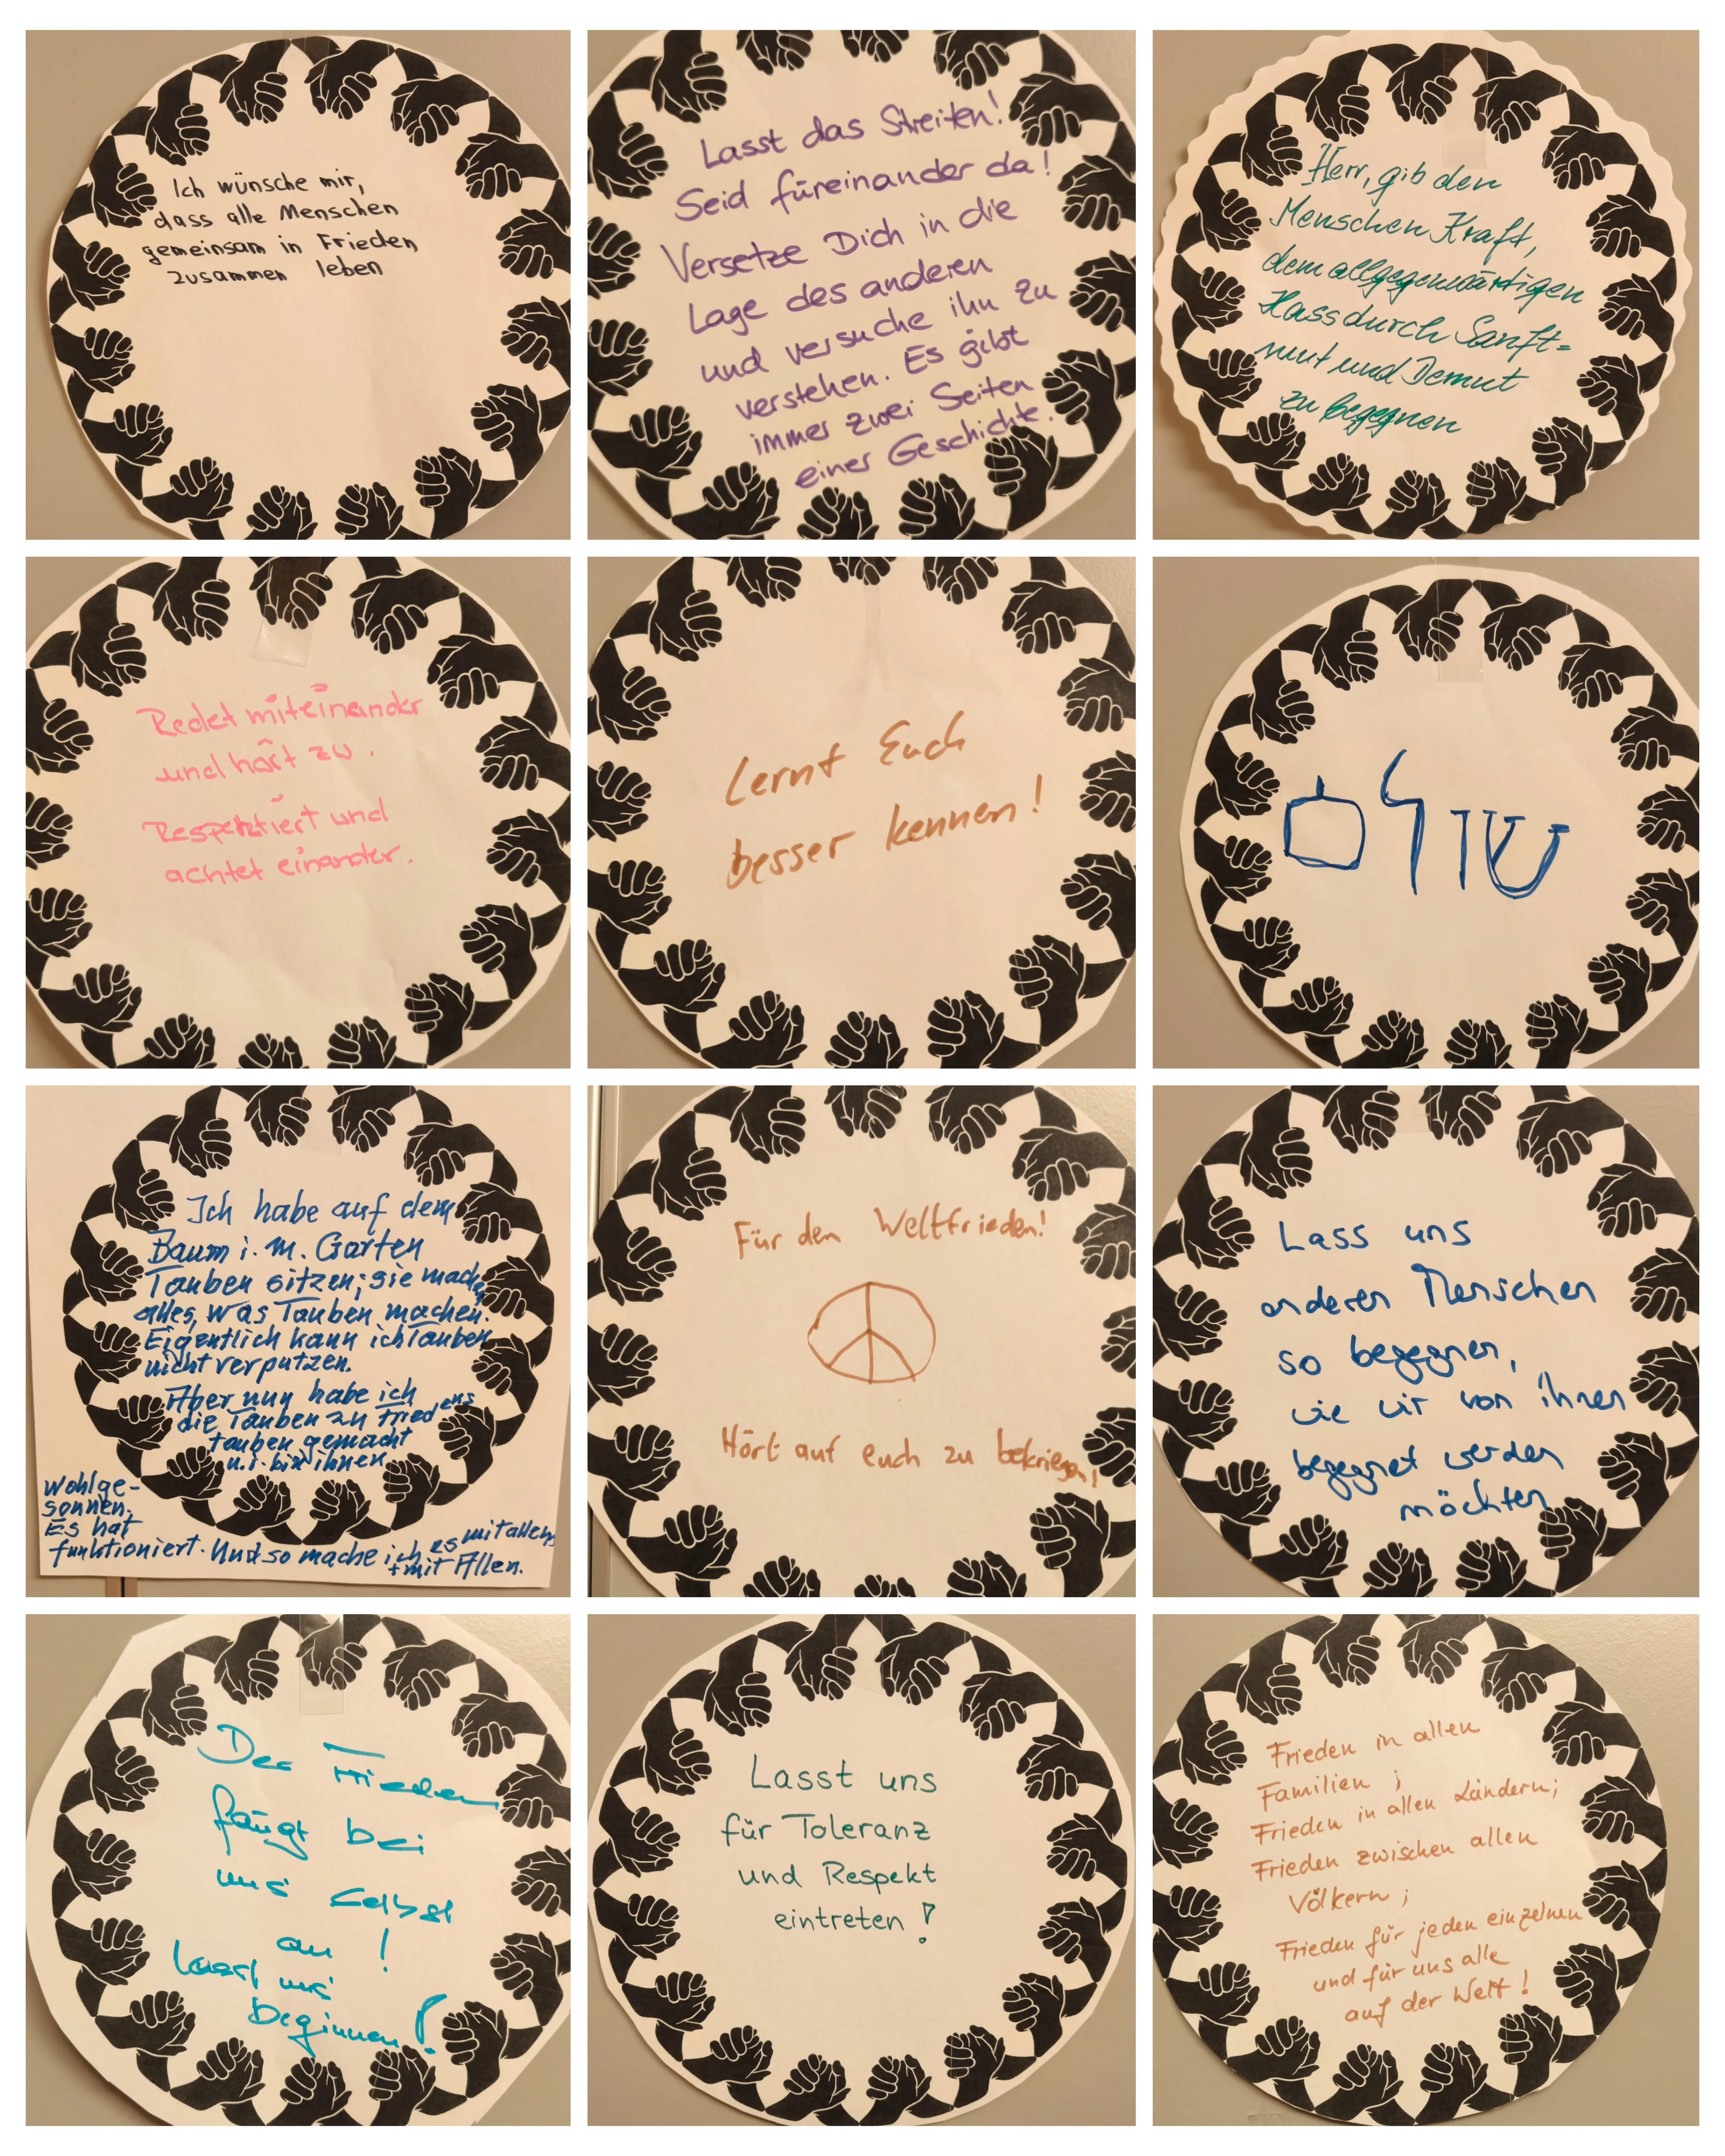 Ich wünsche mir,
dass alle Menschen
gemeinsam in Frieden
zusammen leben
Lasst das Streiten!
Seid füreinander da!
Versetze Dich in die
Lage des anderen
und versuche ihn zu
verstehen. Es gibt
immer zwei Seiten
einer Geschichte.
Herr, gib den
Menschen Kraft,
dem allgegenwärtigen
Hass durch Sanft=
mut und Demut
zu begegnen
Redet miteinander
und hört zu.
Respektiert und
achtet einander.
Lernt Euch
besser kennen!
שולם
Ich habe auf dem
Baum i. m. Garten
Tauben sitzen; sie mache
alles, was Tauben machen.
Eigentlich kann ich Tauben
nicht verputzen.
Aber nun habe ich
die Tauben zu Friedens
tauben gemacht
u. i. bin ihnen
wohlge-
sonnen.
Es hat
funktioniert. Und so mache ich es mit allem
+ mit Allen.
Für den Weltfrieden!
Hört auf euch zu bekriegen!
Lass uns
anderen Menschen
so begegnen,
wie wir von ihnen
begegnet werden
möchten
Der Frieden
fängt bei
uns selbst
an!
Lasst uns
beginnen!
Lasst uns
für Toleranz
und Respekt
eintreten!
Frieden in allen
Familien;
Frieden in allen Ländern;
Frieden zwischen allen
Völkern;
Frieden für jeden einzelnen
und für uns alle
auf der Welt!